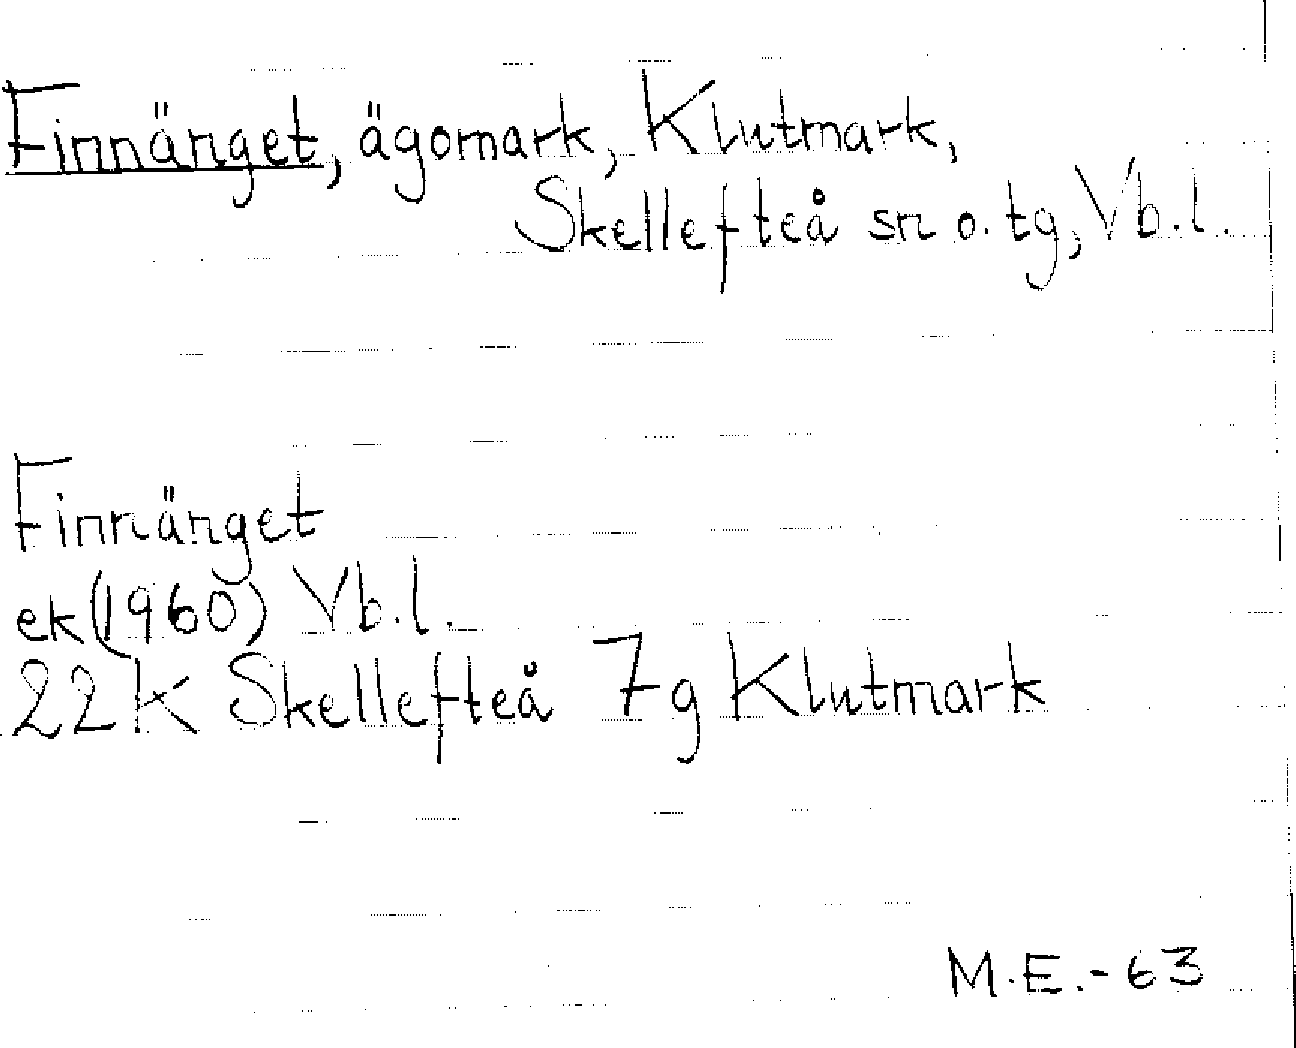 Finnänget, ägomark, Klutmark,
Skellefteå sn o. tg, Vb.l.
Finnänget
ek (1960) Vb.l.
22K Skellefteå 7g Klutmark
M.E.-63